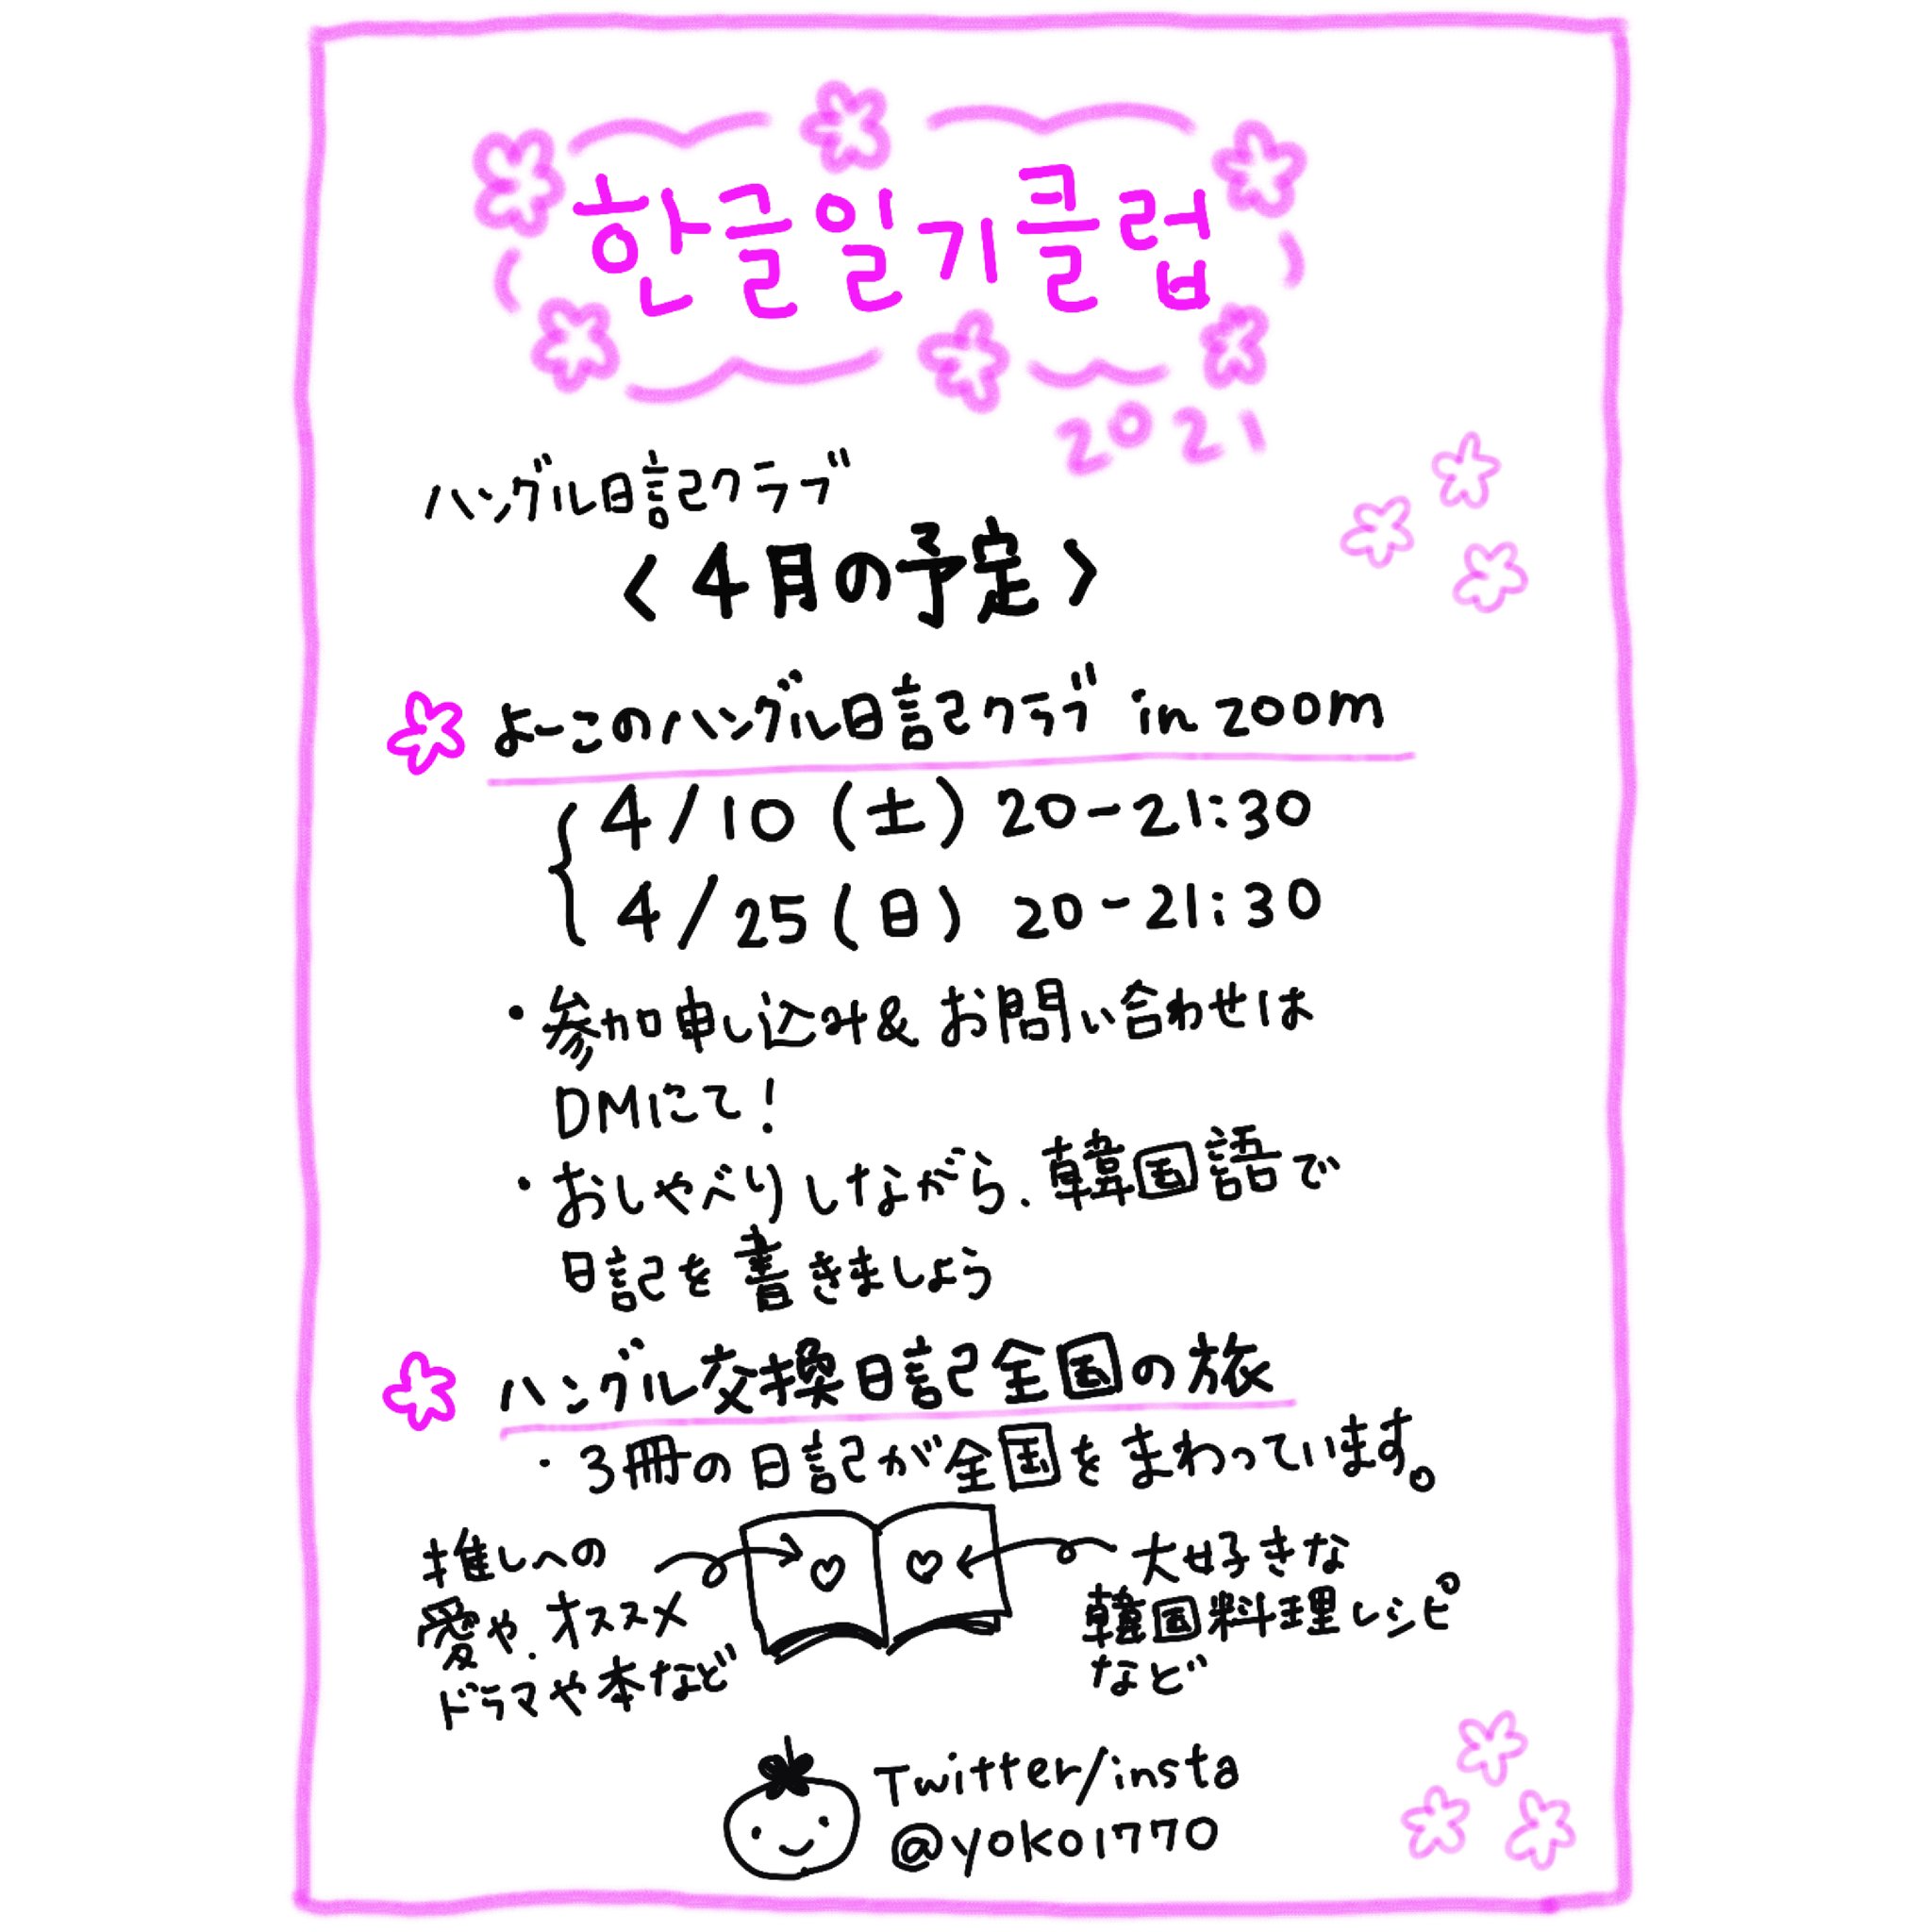 한글일기클럽
2021
ハングル日記クラブ
〈4月の予定〉
よーこのハングル日記クラブ in zoom
4/10(土) 20-21:30
4/25(日) 20-21:30
・参加申し込み&お問い合わせは
DMにて!
・おしゃべりしながら、韓国語で
日記を書きましょう
ハングル交換日記全国の旅
・3冊の日記が全国をまわっています。
推しへの
愛や、オススメ
ドラマや本など
大好きな
韓国料理レシピ
など
Twitter/insta
@yoko1770